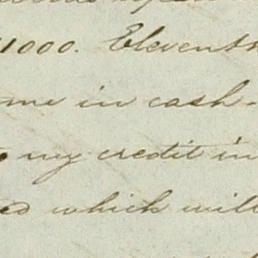 1000. Eleventh
me in cash-
my credit in
which will